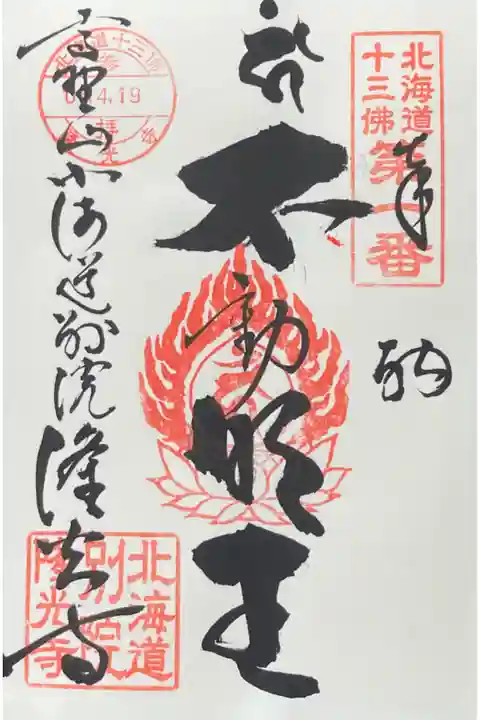 北海道
十三佛
第一番
奉
納
不動明王
高野山北海道別院隆光寺
北海道十三佛
6.4.19
北海道
別院
隆光寺